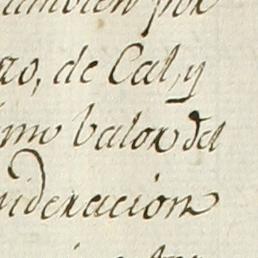 tambien por
zo, de Cal, y
imo balor del
sideracion